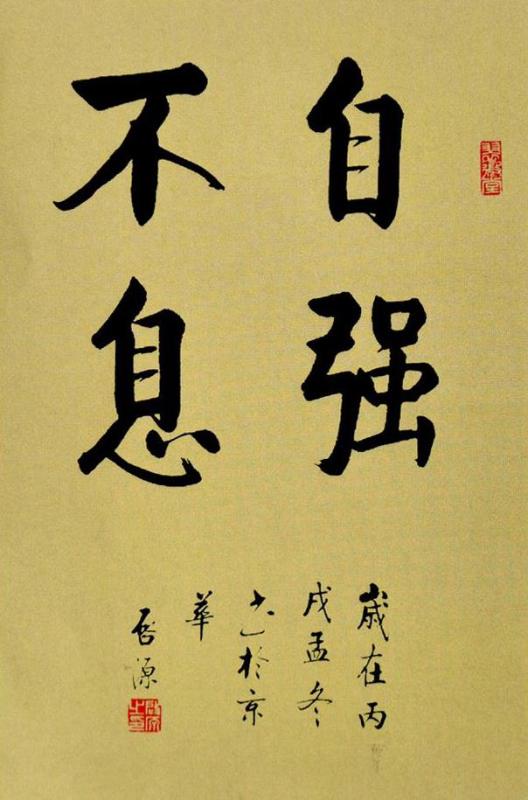 自强
不息
歲在丙
戌孟冬
书於京
華
启源